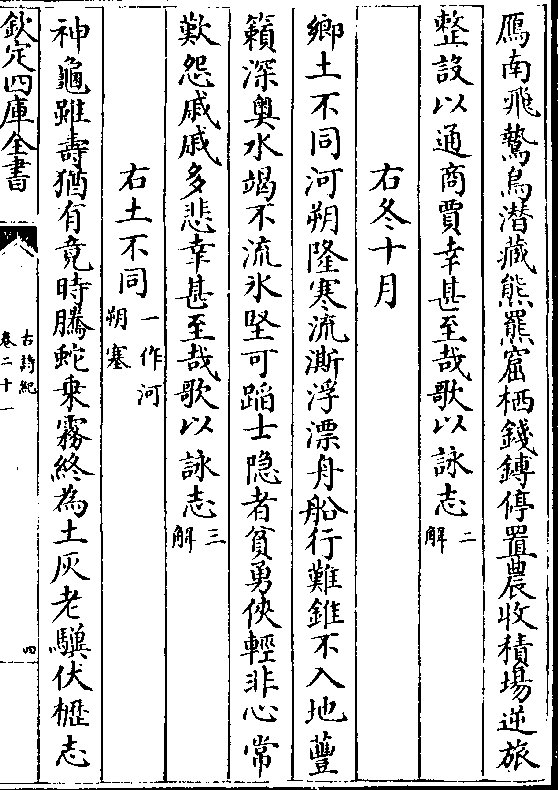 鴈南飛鷙鳥潛藏熊羆窟栖錢鎛停置農收積場逆旅
整設以通商賈幸甚至哉歌以詠志二解
右冬十月
鄉土不同河朔隆寒流澌浮漂舟船行難錐不入地蘴
籟深奥水竭不流氷堅可蹈士隱者貧勇俠輕非心常
歎怨戚戚多悲幸甚至哉歌以詠志三解
右土不同一作河朔寒
神龜雖壽猶有竟時騰蛇乗霧終為土灰老驥伏櫪志
欽定四庫全書
古詩紀
卷二十一
四